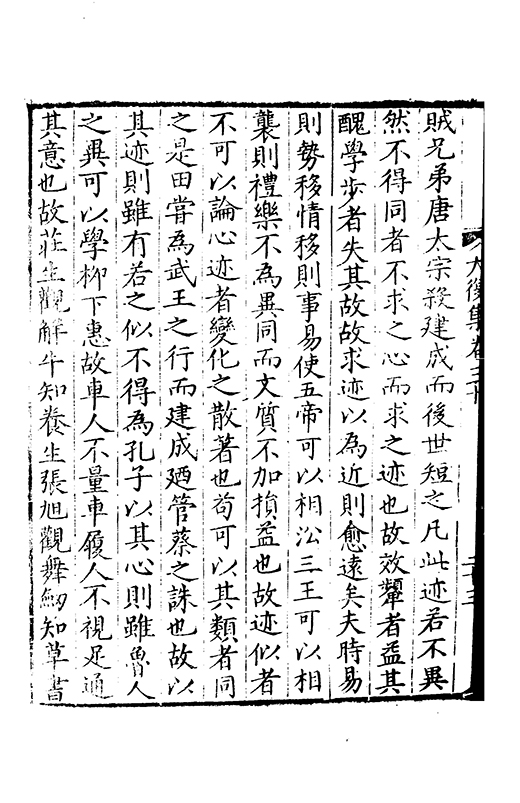 大復集卷三十
二十三
賊兄弟唐太宗殺建成而後世短之凡此迹若不異
然不得同者不求之心而求之迹也故效顰者益其
醜學步者失其故故求迹以為近則愈遠矣夫時易
則勢移情移則事易使五帝可以相㳂三王可以相
襲則禮樂不為異同而文質不加損益也故迹似者
不可以論心迹者變化之散著也苟可以其類者同
之是田嘗為武王之行而建成廼管蔡之誅也故以
其迹則雖有若之似不得為孔子以其心則雖魯人
之異可以學柳下惠故車人不量車履人不視足通
其意也故莊生觀解牛知養生張旭觀舞劒知草書